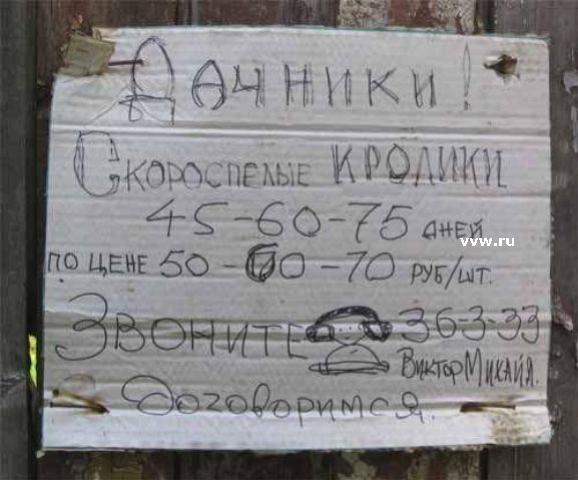 ДАЧНИКИ!
СКОРОСПЕЛЫЕ КРОЛИКИ
45-60-75 ДНЕЙ
vvw.ru
ПО ЦЕНЕ 50-60-70 РУБ/ШТ.
ЗВОНИТЕ 36-3-33
ВИКТОР МИХАЙЛ.
Договоримся.